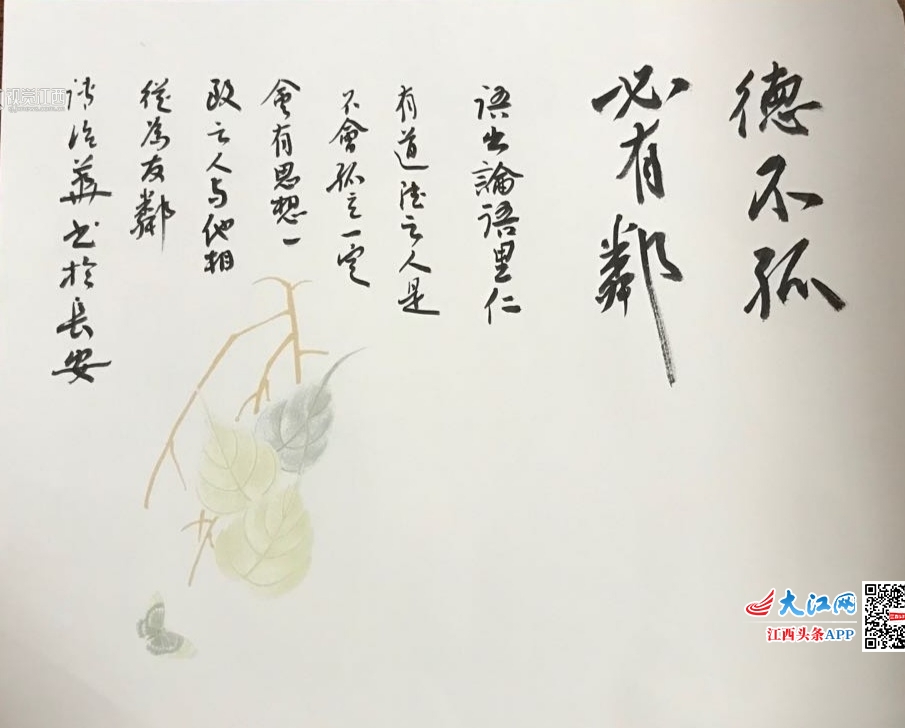 德不孤
必有鄰
語出論語里仁
有道德之人是
不會孤立一定
會有思想一
致之人与他相
從為友鄰
治華书於長安
视觉江西
大江网
江西头条APP